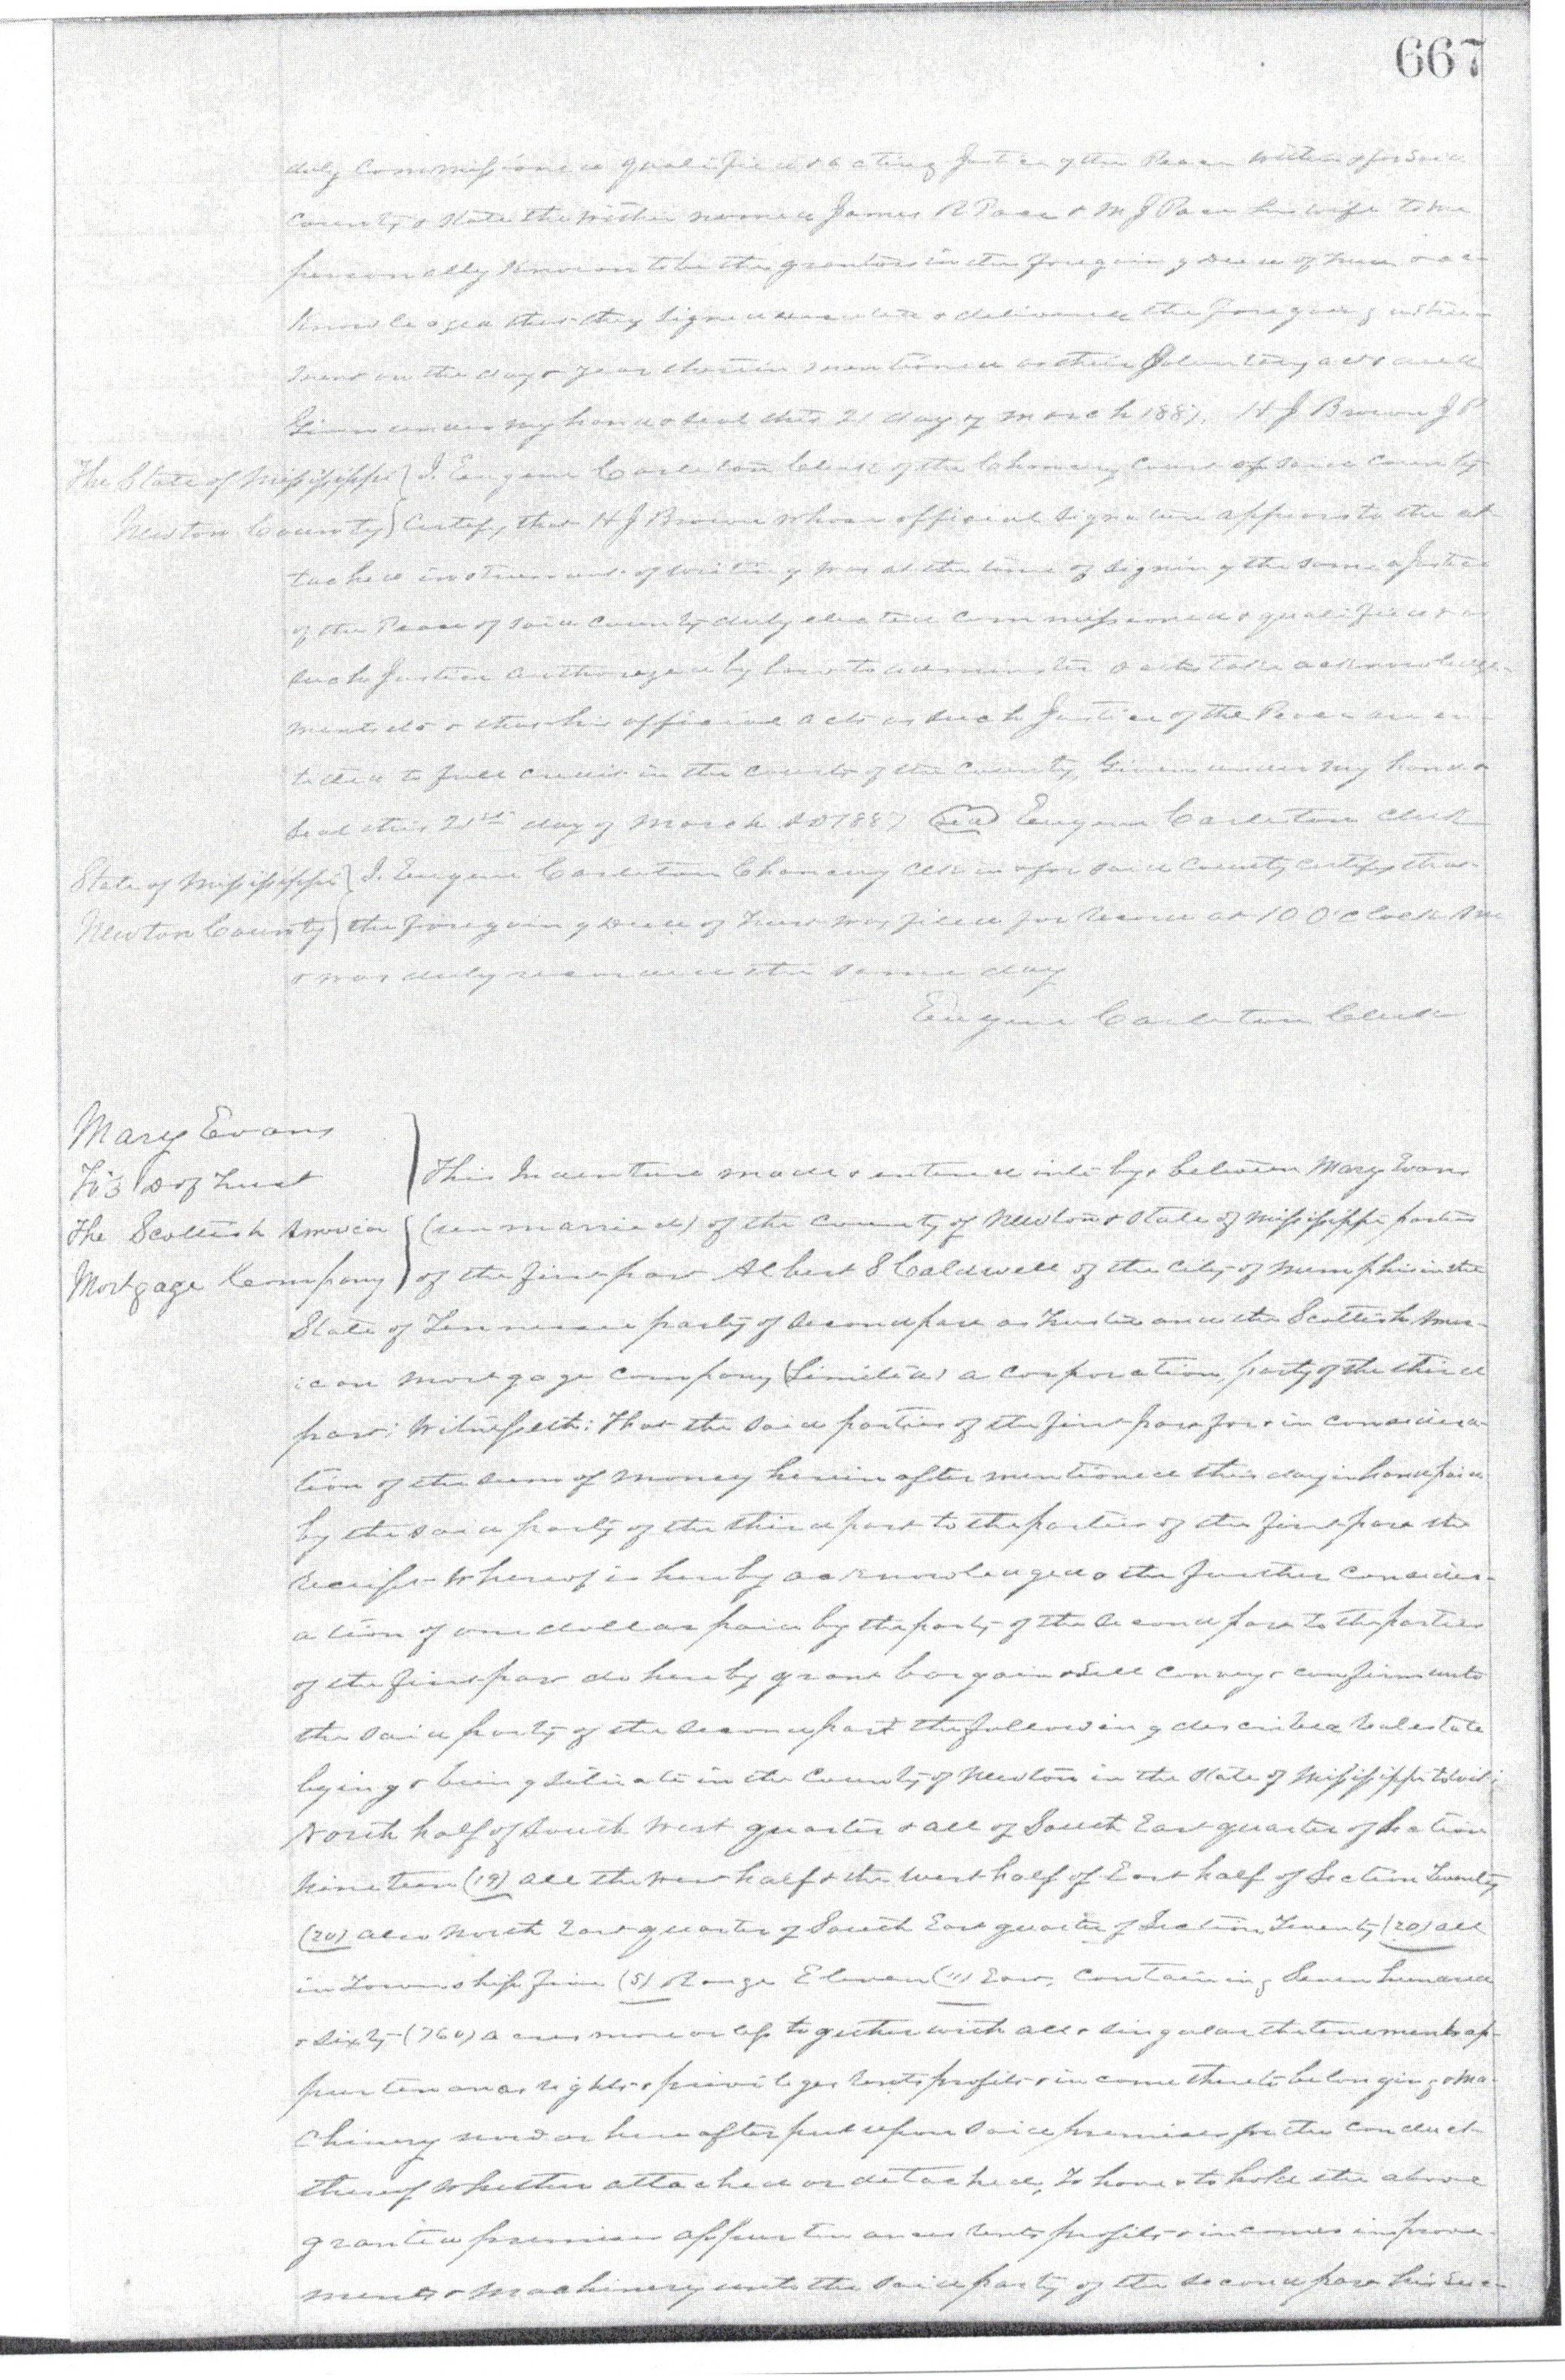 667
duly commissioned qualified & acting Justice of the Peace within & for said
County & State the within named James R Pace & M J Pace his wife to me
personally known to be the grantors in the foregoing Deed of Trust & ac-
knowledged that they signed & delivered the foregoing instru-
ment on the day & year therein mentioned as their Voluntary act & deed
Given under my hand & seal this 21 day of March 1887. H J Brown J P
The State of Mississippi } I. Eugene Carleton Clerk of the Chancery Court of said County
Newton County } Certify that H J Brown whose official signature appears to the at-
tached instrument of writing was at the time of signing the same a Justice
of the Peace of said County duly elected commissioned & qualified & as
such Justice authorized by law to administer oaths take acknowledge-
ments &c & that his official acts as such Justice of the Peace are en-
titled to full credit in the courts of the County, Given under my hand &
seal this 21st day of March AD 1887 (seal) Eugene Carleton Clerk
State of Mississippi } I. Eugene Carleton Chancery Clk in & for said County certify that
Newton County } the foregoing Deed of Trust was filed for record at 10 O'clock AM
& was duly recorded the same day
Eugene Carleton Clerk
Mary Evans
To } D of Trust } This Indenture made & entered into by & between Mary Evans
The Scottish American } (unmarried) of the County of Newton & State of Mississippi parties
Mortgage Company } of the first part Albert S Caldwell of the City of Memphis in the
State of Tennessee party of second part as Trustee and the Scottish Amer-
ican Mortgage Company (Limited) a corporation, party of the third
part; Witnesseth: That the said parties of the first part for & in considera-
tion of the sum of money herein after mentioned this day in hand paid
by the said party of the third part to the parties of the first part the
receipt whereof is hereby acknowledged & the further consider-
ation of one dollar paid by the party of the second part to the parties
of the first part do hereby grant bargain & sell convey & confirm unto
the said party of the second part the following described real estate
lying & being situate in the County of Newton in the State of Mississippi to wit;
North half of South West quarter & all of South East quarter of Section
Nineteen (19) all the West half & the West half of East half of Section Twenty
(20) also North East quarter of South East quarter of Section Twenty (20) all
in Township Five (5) Range Eleven (11) East, Containing Seven hundred
& sixty (760) acres more or less together with all & singular the tenements ap-
purtenances rights & privileges rents profits & income thereto belonging & ma-
chinery now or here after put upon said premises for the conduct
thereof whether attached or detached, To have & to hold the above
granted premises appurtenances rents profits & incomes improve-
ments & machinery unto the said party of the second part his suc-